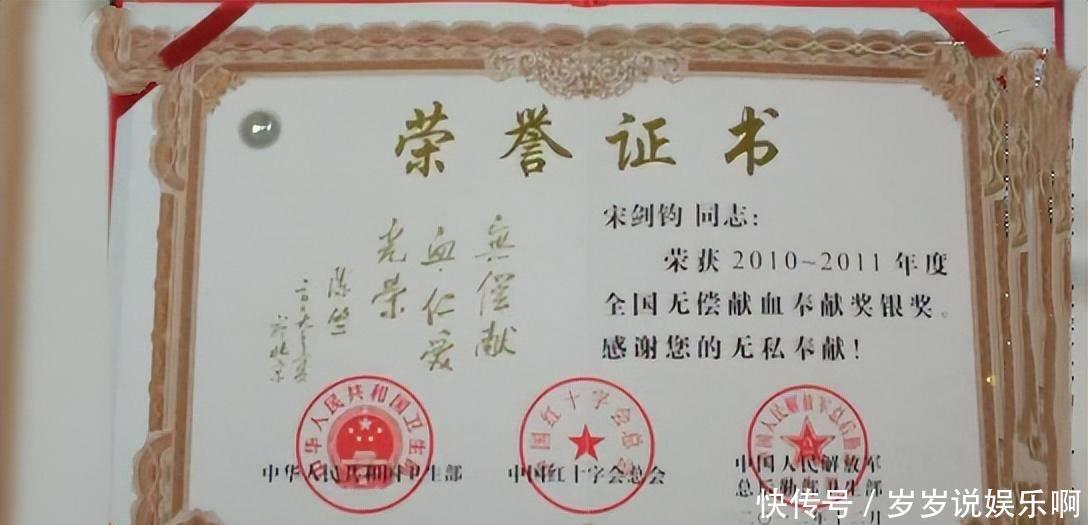 荣誉证书
宋剑钧 同志:
荣获2010~2011年度
全国无偿献血奉献奖银奖。
感谢您的无私奉献!
無偿献
血仁爱
光荣
陈竺
中华人民共和国卫生部
中国红十字会总会
中国人民解放军
总后勤部卫生部
中华人民共和国卫生部
中国红十字会总会
快传号/岁岁说娱乐啊